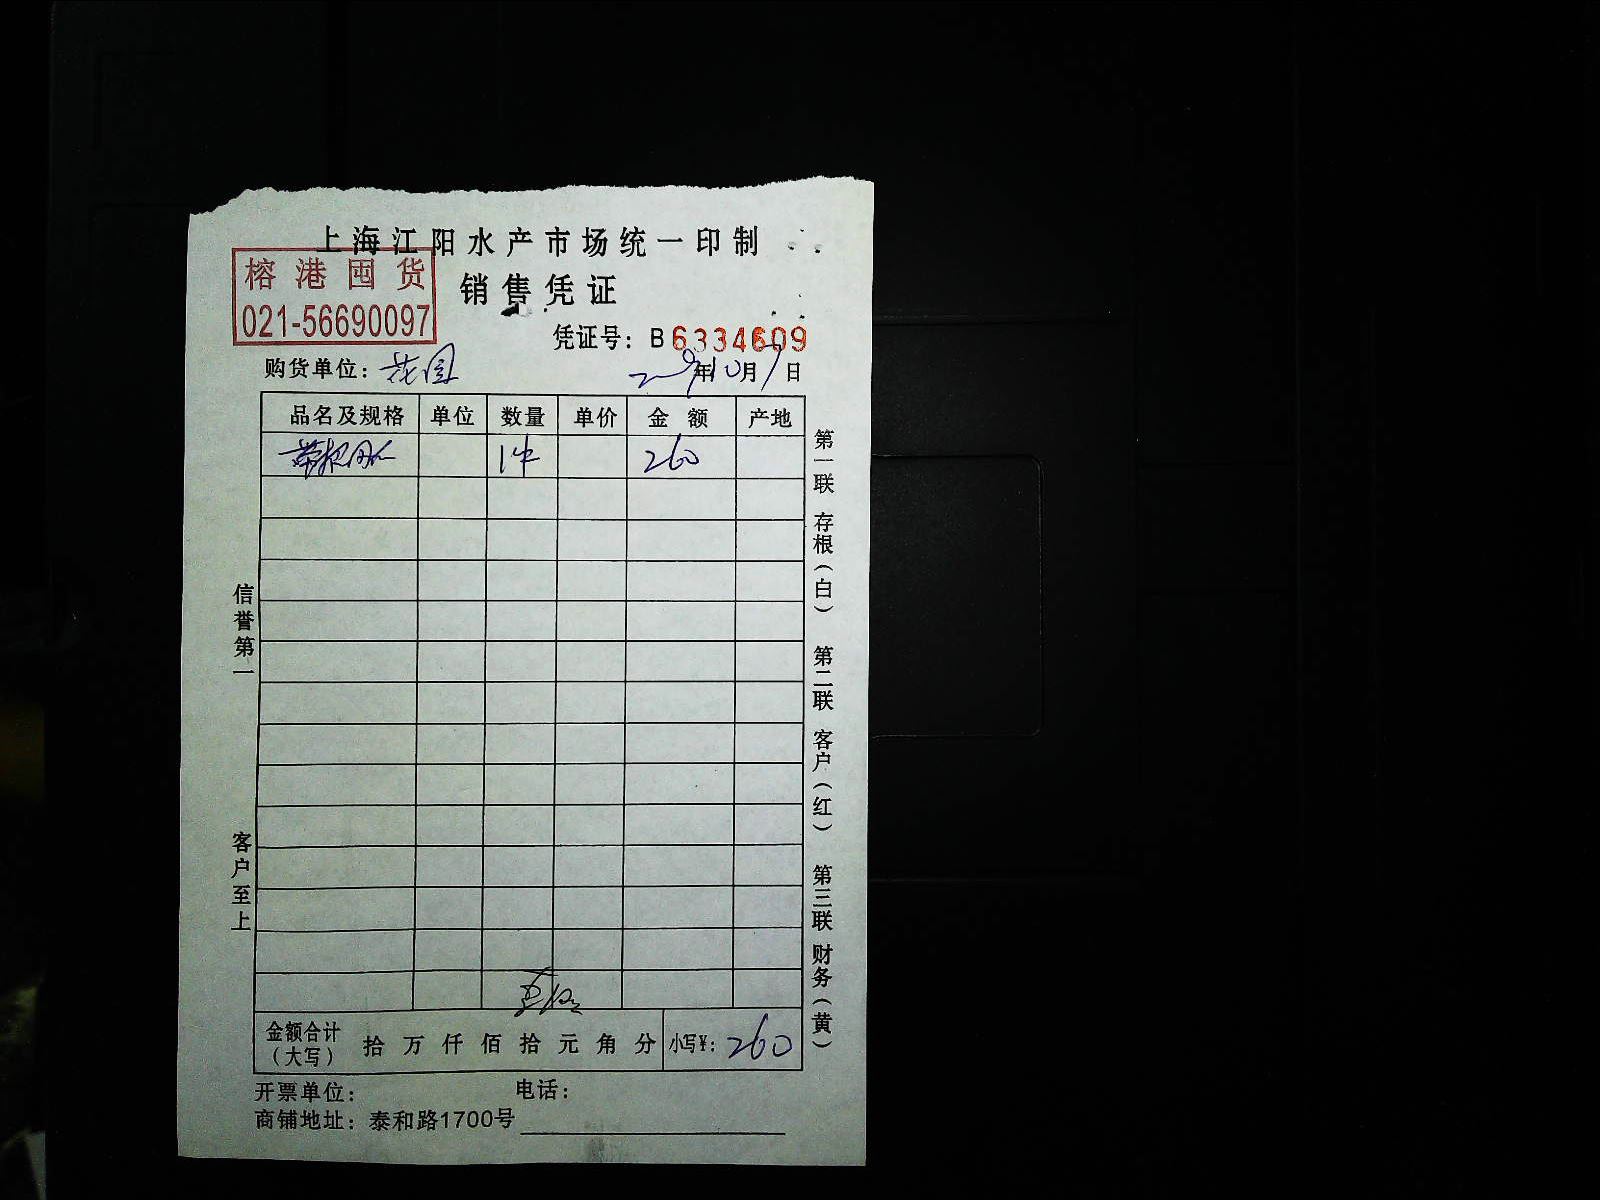 上海江阳水产市场统一印制
榕港囤货
销售凭证
021-56690097
凭证号：B6334609
购货单位：花园
年10月7日
品名及规格 单位 数量 单价 金额 产地
1件 260
金额合计（大写） 拾万仟佰拾元角分 小写¥：260
开票单位： 电话：
商铺地址：泰和路1700号
信誉第一
客户至上
第一联 存根（白） 第二联 客户（红） 第三联 财务（黄）